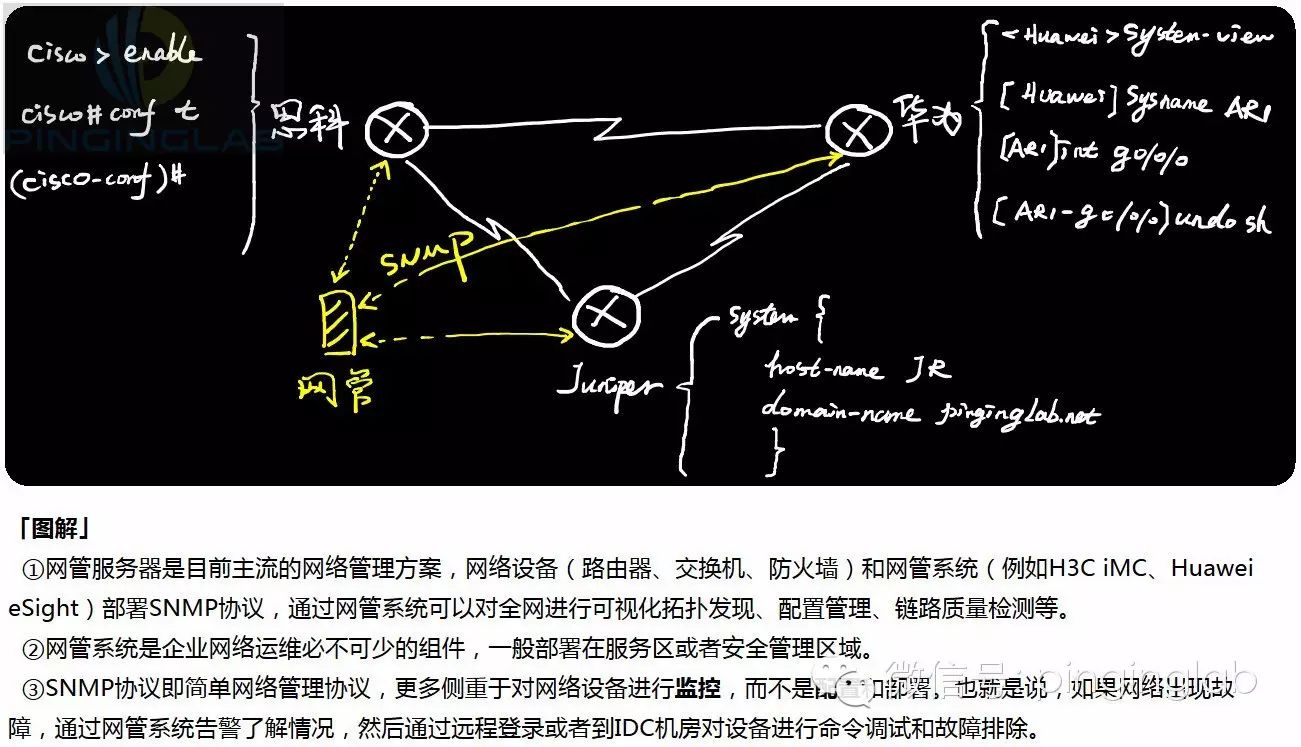 PINGINGLAB
cisco > enable
cisco# conf t
(cisco-conf)#
思科
华为
<Huawei>system-view
[Huawei] sysname AR1
[AR1]int g0/0/0
[AR1-g0/0/0]undo sh
SNMP
网管
Juniper
system {
host-name JR
domain-name pinginglab.net
}
「图解」
①网管服务器是目前主流的网络管理方案,网络设备(路由器、交换机、防火墙)和网管系统(例如H3C iMC、Huawei
eSight)部署SNMP协议,通过网管系统可以对全网进行可视化拓扑发现、配置管理、链路质量检测等。
②网管系统是企业网络运维必不可少的组件,一般部署在服务区或者安全管理区域。
③SNMP协议即简单网络管理协议,更多侧重于对网络设备进行监控,而不是配置和部署。也就是说,如果网络出现故
障,通过网管系统告警了解情况,然后通过远程登录或者到IDC机房对设备进行命令调试和故障排除。
微信号: pinginglab